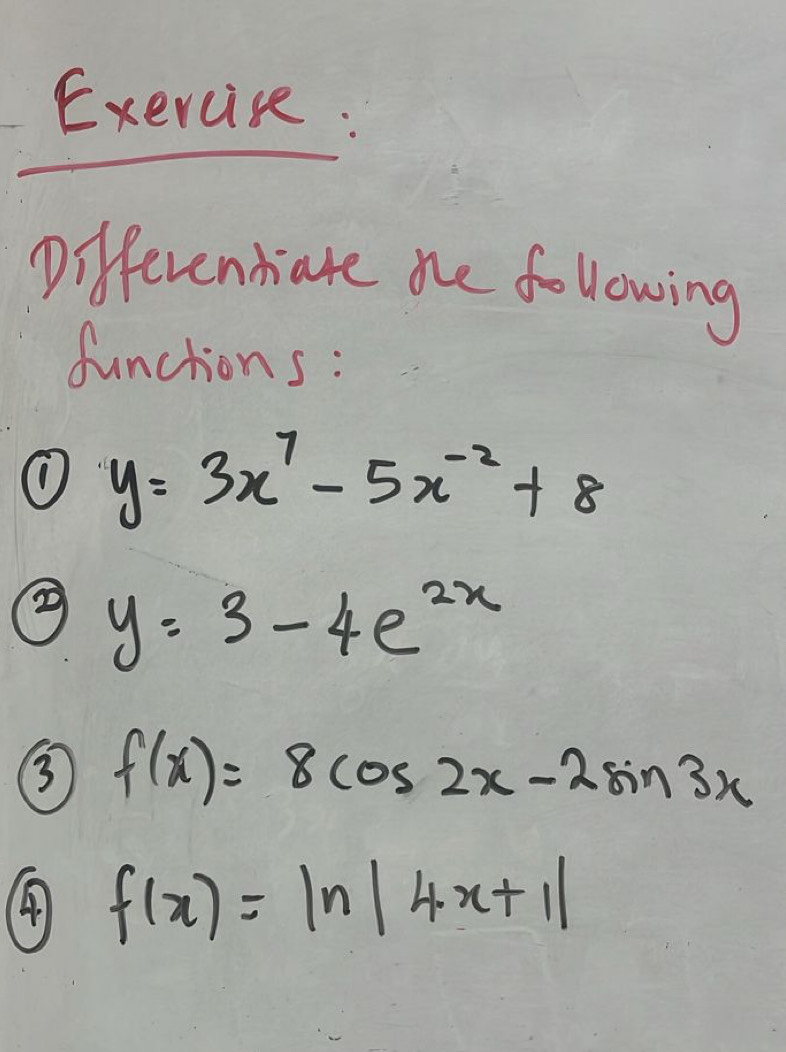 Exercise :
Differentiate the following
functions :
① y = 3x⁷ - 5x⁻² + 8
② y = 3 - 4e²ˣ
③ f(x) = 8 cos 2x - 2 sin 3x
④ f(x) = ln | 4x + 1|